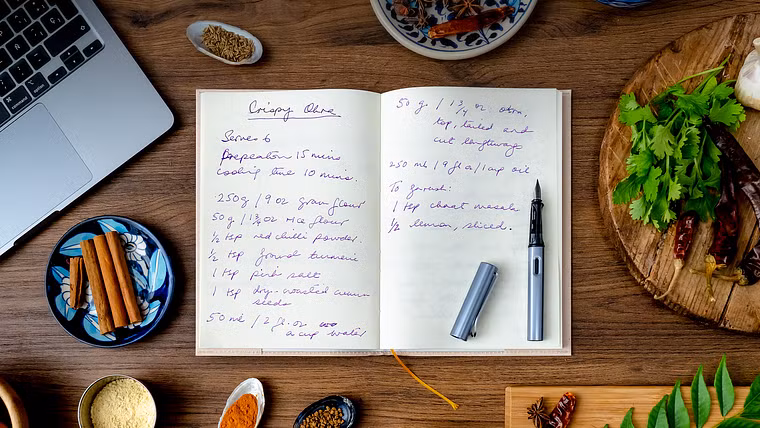 Crispy Okra
Serves 6
Preparation 15 mins
Cooking time 10 mins.
250g / 9 oz gram flour
50g / 1 3/4 oz rice flour
1/2 tsp red chilli powder.
1/2 tsp ground turmeric
1 tsp pink salt
1 tsp dry-roasted cumin
seeds
50 ml / 2 fl. oz
a cup water
50 g. / 1 3/4 oz okra,
top, tailed and
cut lengthways
250 ml / 9 fl oz / 1 cup oil
To garnish:
1 tsp chaat masala
1/2 lemon, sliced.